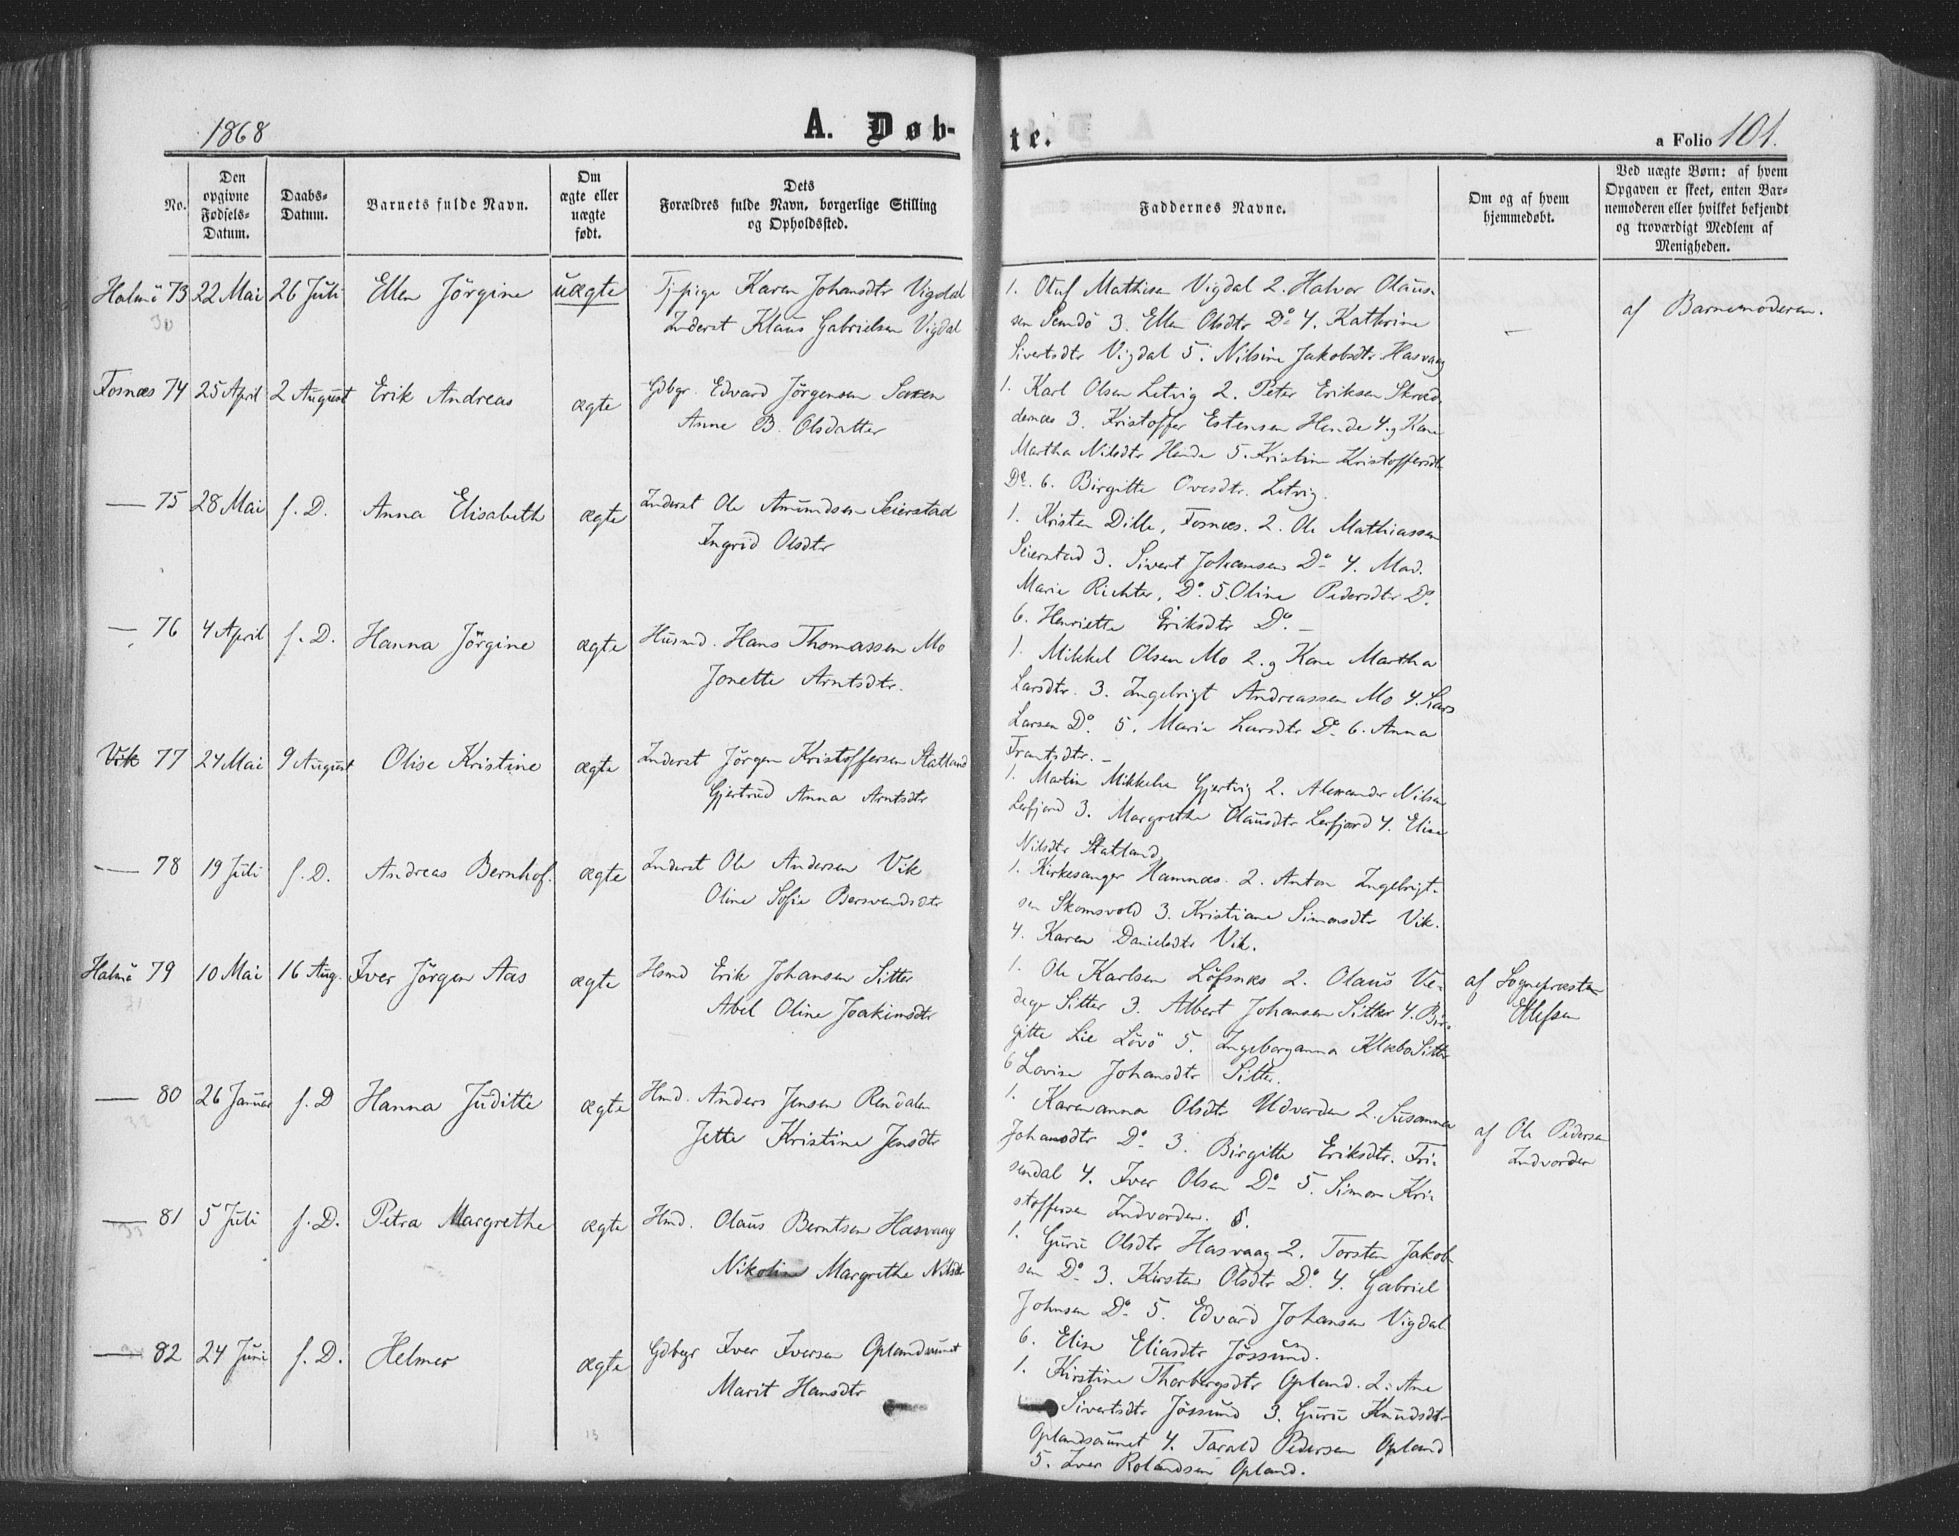 1868
A. Døb-
No.
Den opgivne Fødsels-Datum.
Daabs-Datum.
Barnets fulde Navn.
Om ægte eller uægte født.
Dets Forældres fulde Navn, borgerlige Stilling og Opholdssted.
Halmö 73 22 Mai 26 Juli Ellen Jörgine uægte Tj-pige Karen Johansdtr Vigdal
30 Inderst Klaus Gabrielsen Vigdal
Fosnæs 74 25 April 2 August Erik Andreas ægte Gdbgr. Edvard Jörgensen Saxen
Anne B. Olsdatter
— 75 28 Mai f. D. Anna Elisabeth ægte Inderst Ole Amundsen Seierstad
Ingrid Olsdtr
— 76 4 April f. D. Hanna Jörgine ægte Husmd. Hans Thomassen Mo
Jonette Arntsdtr.
Vik 77 24 Mai 9 August Olise Kristine ægte Inderst Jörgen Kristoffersen Statland
Gjertrud Anna Arntsdtr
— 78 19 Juli f. D. Andreas Bernhof. ægte Inderst Ole Andersen Vik
Oline Sofie Bersvendsdtr
Halmö 79 10 Mai 16 Aug. Iver Jörgen Aas ægte Hsmd Erik Johansen Sitter
31 Abel Oline Joakimsdtr
— 80 26 Januar f. D Hanna Juditte ægte Hmd. Anders Jensen Rendalen
32 Jette Kristine Jensdtr
— 81 5 Juli f. D. Petra Margrethe ægte Hmd. Olaus Berntsen Hasvaag
33 Nikoline Margrethe Nilsdtr
— 82 24 Juni f. D. Helmer ægte Gdbgr Iver Iversen Oplandaunet
Marit Hansdtr
13
te.
a Folio 101.
Faddernes Navne.
Om og af hvem hjemmedøbt.
Ved uægte Børn: af hvem
Opgaven er skeet, enten Bar-
nemoderen eller hvilket bekjendt
og troværdigt Medlem af
Menigheden.
1. Oluf Mathisen Vigdal 2. Halvor Olaus-
sen Semdö 3. Ellen Olsdtr Do 4. Kathrine — af Barnemoderen.
Sivertsdtr Vigdal 5. Nilsine Jakobsdtr Hasvaag
1. Karl Olsen Letvig 2. Peter Eriksen Skræd-
dernæs 3. Kristoffer Estensen Hende 4. g Kone
Martha Nilsdtr Hende 5. Kristine Kristoffersdtr
Do. 6. Birgitte Ovesdtr. Letvig.
1. Kristen Dille, Fosnæs. 2. Ole Mathiassen
Seierstad 3. Sivert Johansen Do 4. Mad.
Marie Richter, Do. 5. Oline Pedersdtr Do.
6. Henriette Eriksdtr Do. —
1. Mikkel Olsen Mo 2. g Kone Martha
Larsdtr. 3. Ingebrigt Andreassen Mo 4. Lars
Larsen Do. 5. Marie Larsdtr Do 6. Anna
Frantsdtr. —
1. Martin Mikkelsen Gjertvig 2. Alexander Nilsen
Lerfjord 3. Margrethe Olausdtr Lerfjord 4. Elise
Nilsdtr Statland
1. Kirkesanger Hamnæs. 2. Anton Ingebrigt-
sen Skomsvold 3. Kristiane Simonsdtr Vik.
4. Karen Danielsdtr Vik.
1. Ole Karlsen Löfsnæs 2. Olaus Ve- af Sognepræsten
dege Sitter 3. Albert Johansen Sitter 4. Bir- Ellefsen
gitte Lie Lövö 5. Ingeborganna Klæbo Sitter
6 Lovise Johansdtr Sitter.
1. Karenanna Olsdtr Udvorden 2. Susanna
Johansdtr Do 3. Birgitte Eriksdtr. Fri- af Ole Pedersen
sendal 4. Iver Olsen Do 5. Simon Kri- Indvorden
stoffersen Indvorden.
1. Guru Olsdtr Hasvaag 2. Torsten Jakob-
sen Do 3. Kirsten Olsdtr Do. 4. Gabriel
Johnsen Do 5. Edvard Johansen Vigdal
6. Elise Eliasdtr Jössund.
1. Kirstine Thorbergsdtr Opland. 2. Ane
Sivertsdtr Jössund 3. Guru Knudsdtr
Oplandsaunet 4. Tarald Pedersen Opland
5. Iver Rolandsen Opland.